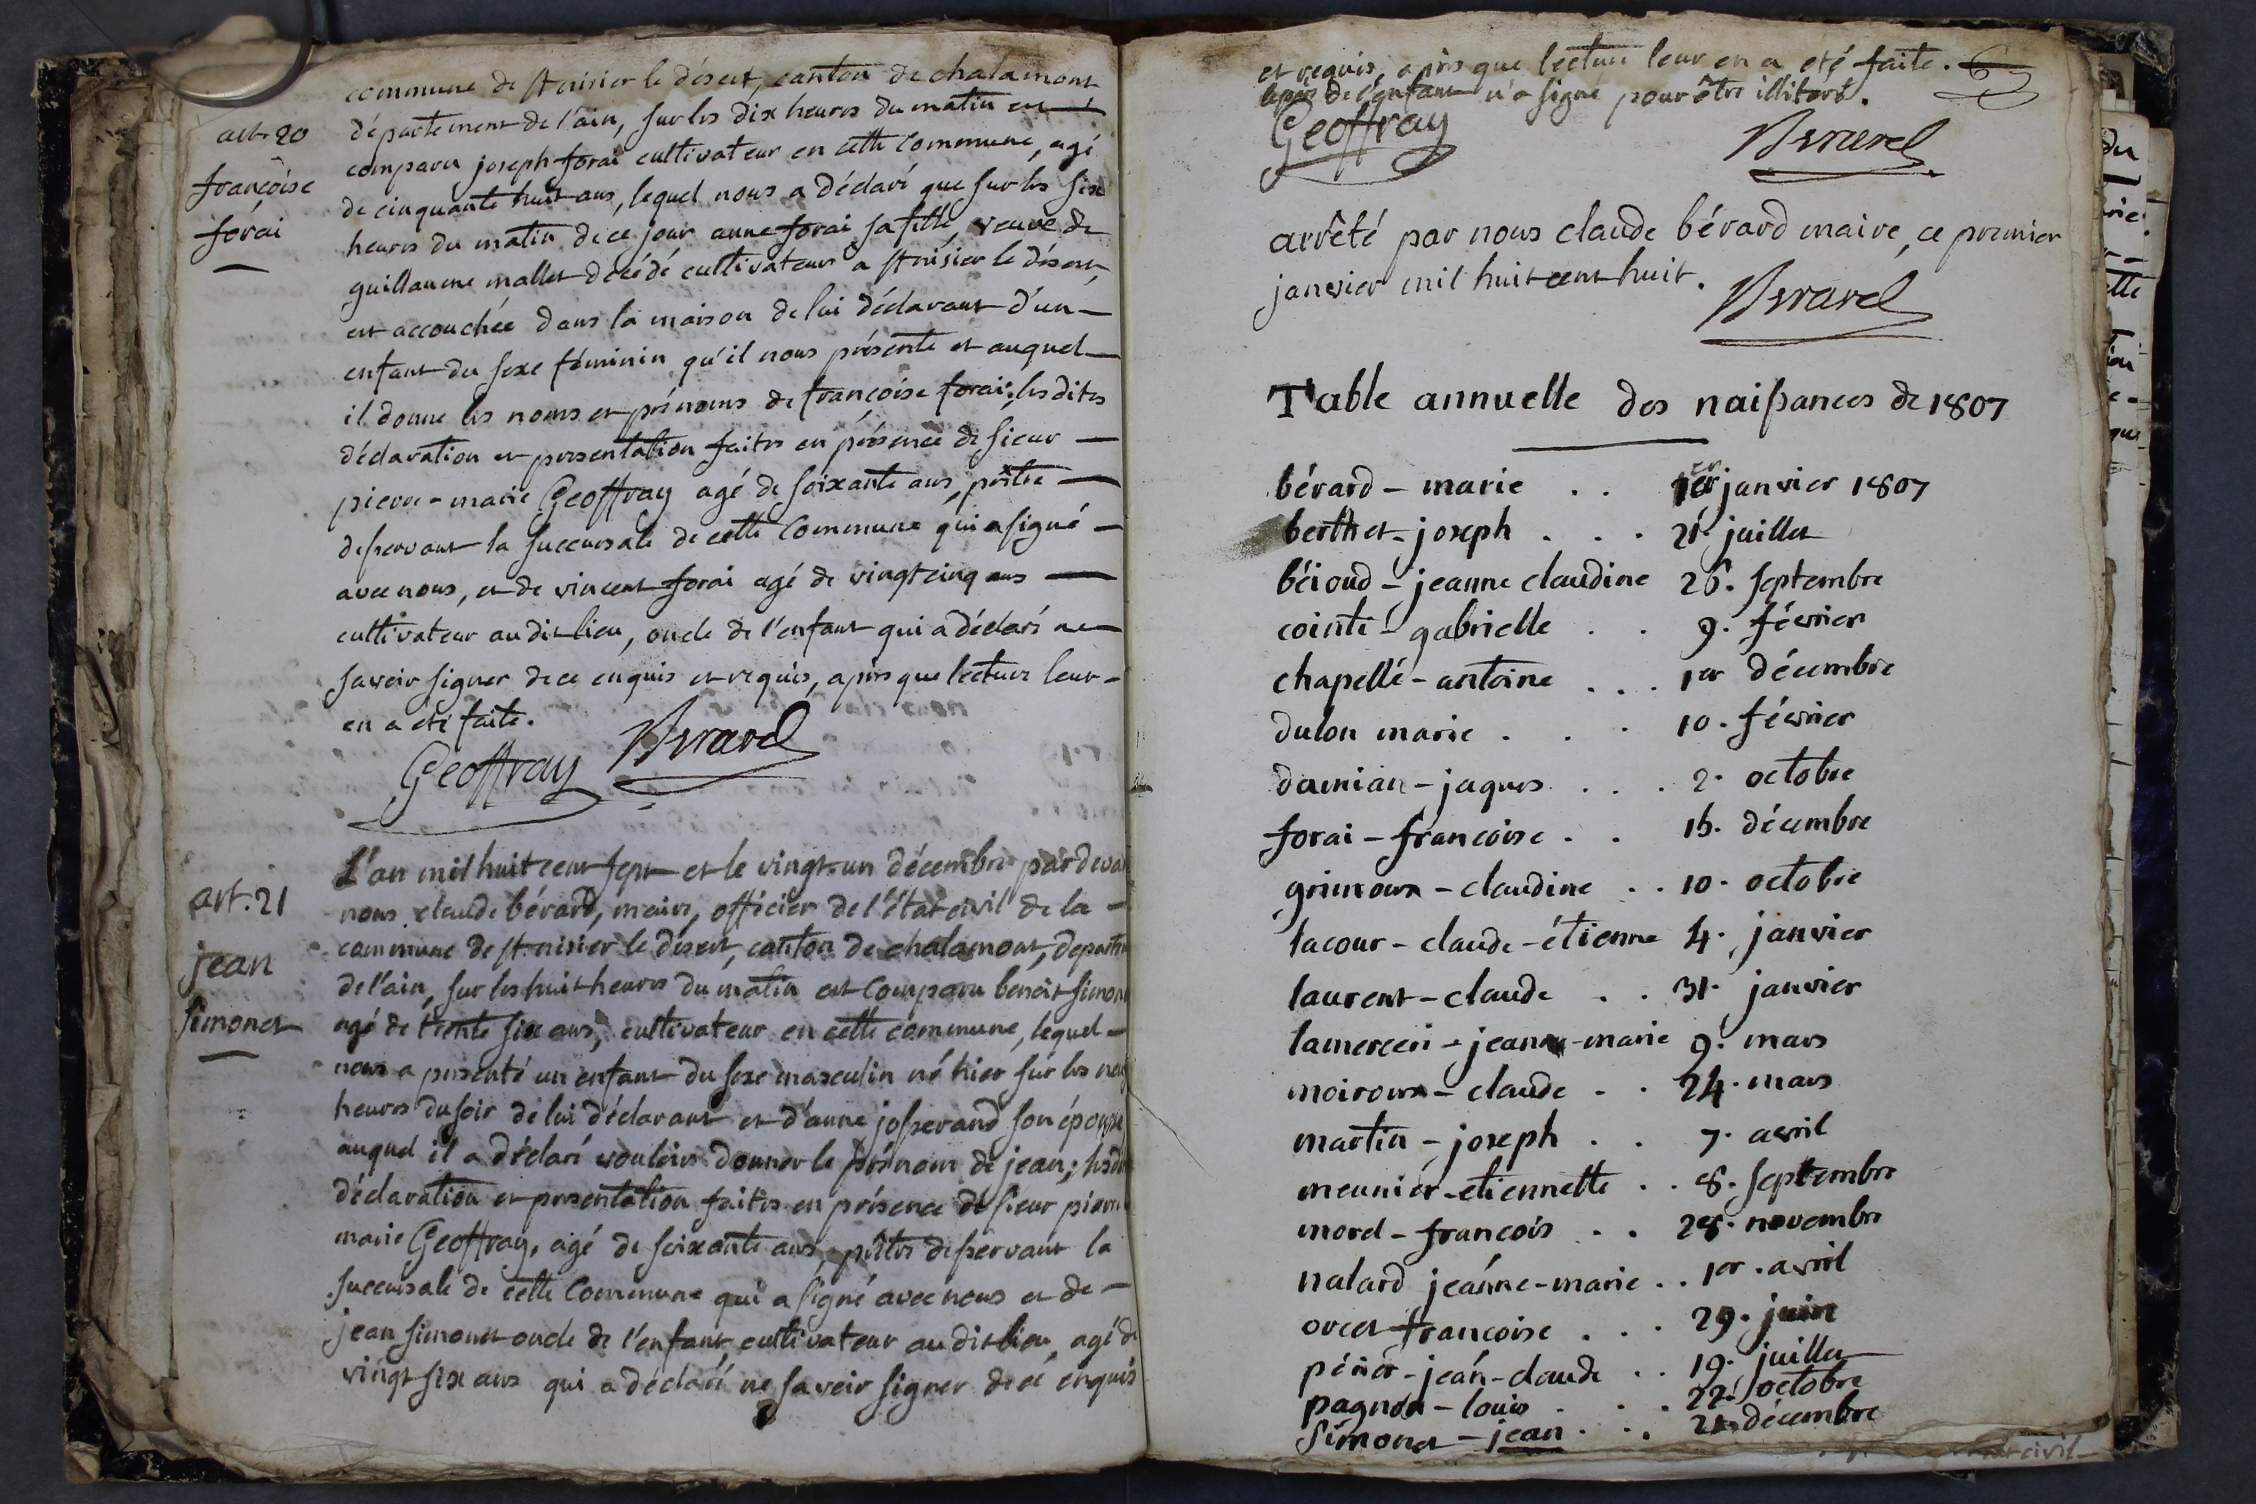 commune de st nisier le désert, canton de chalamont
art. 20
département de l'ain, sur les dix heures du matin est
françoise
comparu joseph forai cultivateur en cette commune, agé
forai
de cinquante huit ans, lequel nous a déclaré que sur les six
heures du matin de ce jour anne forai sa fille, veuve de
guillaume mallet décédé cultivateur a st nisier le désert,
est accouchée dans la maison de lui déclarant d'un
enfant du sexe féminin qu'il nous présente et auquel
il donne les noms et prénoms de françoise forai; les dites
déclaration et presentation faites en présence de sieur
pierre-marie Geoffray agé de soixante ans, prêtre
desservant la succursale de cette commune qui a signé
avec nous, et de vincent forai agé de vingt cinq ans
cultivateur au dit lieu, oncle de l'enfant qui a déclaré ne
savoir signer de ce enquis et requis, après que lecture leur
en a été faite.
Geoffray Berard
L'an mil huit cent sept et le vingt-un décembre par deva
art. 21
nous claude bérard, maire, officier de l'état civil de la
commune de st nisier le désert, canton de chalamont, departm
jean
de l'ain, sur les huit heures du matin est comparu benoit simon
simonet
agé de trente six ans, cultivateur en cette commune, lequel
nous a presenté un enfant du sexe masculin né hier sur les
heures du soir de lui déclarant et d'anne josserand son épouse
auquel il a déclaré vouloir donner le prénom de jean; les
déclaration et presentation faites en présence de sieur pierre
marie Geoffray, agé de soixante ans, prêtre desservant la
succursale de cette commune qui a signé avec nous et de
jean simonet oncle de l'enfant cultivateur au dit lieu, agé de
vingt six ans qui a déclaré ne savoir signer de ce enquis
et requis, après que lecture leur en a eté faite.
le père de l'enfant n'a signé pour être illitéré.
Geoffray Berard
arrêté par nous claude bérard maire, ce premier
janvier mil huit cent huit.
Berard
Table annuelle des naissances de 1807
bérard - marie . . 1er janvier 1807
berthet - joseph . . . 21. juillet
béioud - jeanne claudine 26. septembre
cointe - gabrielle . . 9. février
chapellé - antoine . . . 1er décembre
dulon marie . . . 10. février
damian - jaques . . . 2. octobre
forai - françoise . . 16. décembre
grimoux - claudine . . 10. octobre
lacour - claude - étienne 4. janvier
laurent - claude . . 31. janvier
lamerceri - jeanne-marie 9. mars
moiroux - claude . . 24. mars
martin - joseph . . 7. avril
meunier - etiennette . . 8. septembre
morel - francois . . 28. novembre
nalard jeanne-marie . . 1er. avril
orcet françoise . . . 29. juin
périer - jean - claude . . 19. juillet
pagnon - louis . . . 22. octobre
simonet - jean . . . 21. décembre
civil